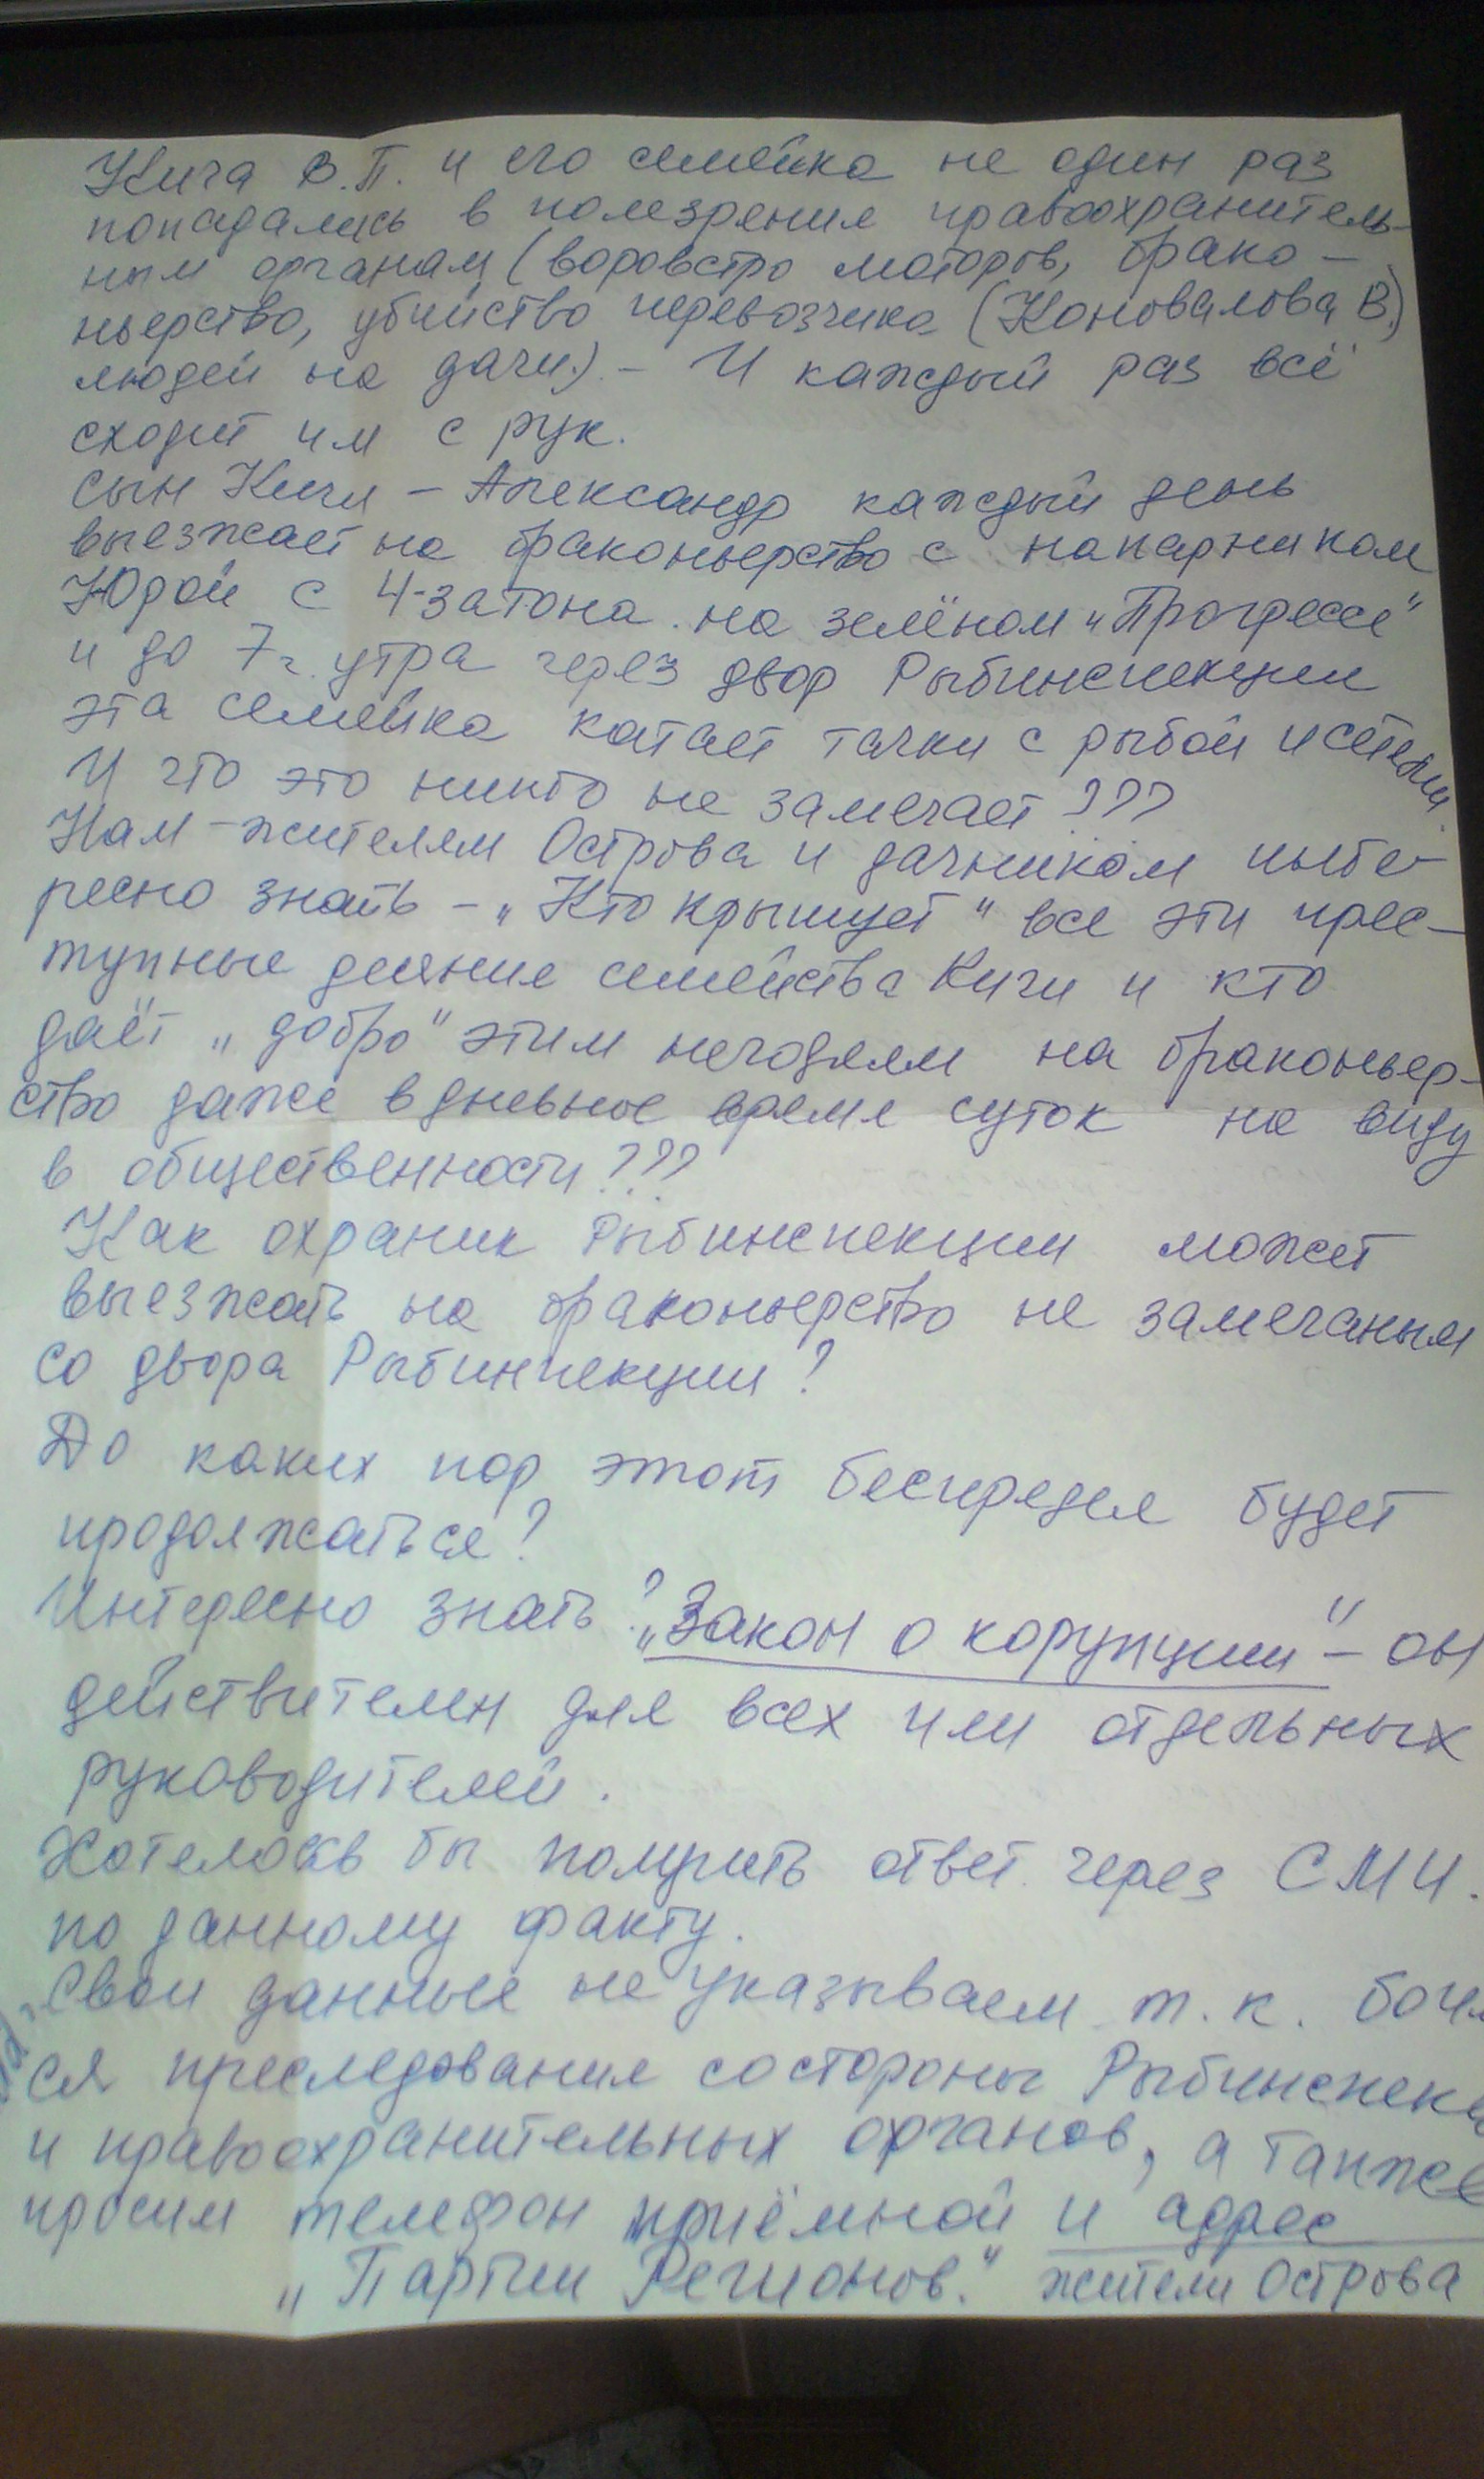 Кича В.П. и его семейка не один раз
попадались в полезрения правоохранитель-
ным органам (воровстро моторов, брако-
ньерство, убийство перевозчика (Коновалова В.)
людей на дачи). – И каждый раз всё
сходит им с рук.
сын Кичи – Александр каждый день
выезжает на браконьерство с напарником
Юрой с 4-затона на зелёном „Прогрессе"
и до 7 ч. утра через двор Рыбинспекции
эта семейка катает тачки с рыбой и сетями.
И что это никто не замечает???
Нам – жителям Острова и дачником
ресно знать – „Кто крышует" все эти прес-
тупные деяния семейства Кичи и кто
даёт „добро" этим негодяям на браконьер-
ство даже в дневное время суток на виду
в общественности???
Как охраник Рыбинспекции может
выезжать на браконьерство не замечаным
со двора Рыбинпекции?
До каких пор этот беспредел будет
продолжаться?
Интересно знать? „Закон о корупции" – он
действителен для всех или отдельных
руководителей.
Хотелось бы получить ответ через СМИ.
по данному факту.
Свои данные не указываем т.к. боим
ся преследования состороны Рыбинспекц
и правоохранительных органов, а также
просим телефон приёмной и адрес
„Партии Регионов." жители Острова